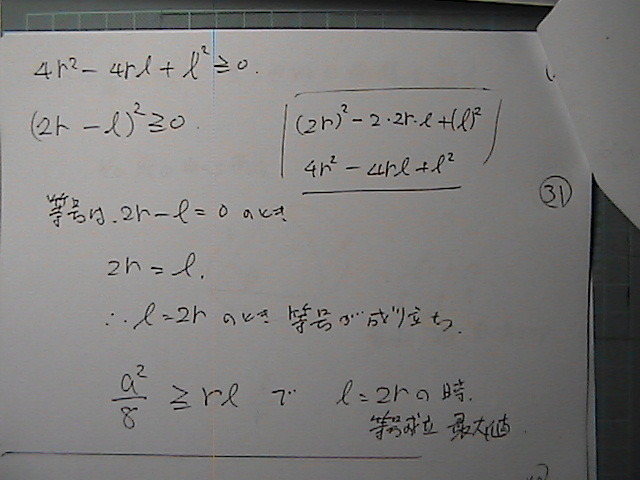 4r² - 4rl + l² ≧ 0.
(2r - l)² ≧ 0.
(2r)² - 2・2r・l + (l)²
4r² - 4rl + l²
㉛
等号は、2r - l = 0 のとき
2r = l.
∴ l = 2r のとき 等号が成り立つ.
a²/8 ≧ rl で l = 2r の時.
等号成立 最大値.